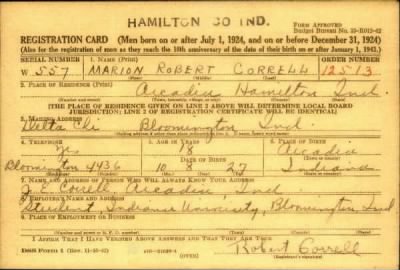 HAMILTON CO IND.
FORM APPROVED
Budget Bureau No. 33-R012-42
REGISTRATION CARD (Men born on or after July 1, 1924, and on or before December 31, 1924)
(Also for the registration of men as they reach the 18th anniversary of the date of their birth on or after January 1, 1943.)
SERIAL NUMBER 1. NAME (Print) ORDER NUMBER
W 557 MARION ROBERT CORRELL 12513
(First) (Middle) (Last)
2. PLACE OF RESIDENCE (Print)
Arcadia Hamilton Ind.
(Town, township, village, or city) (County) (State)
[THE PLACE OF RESIDENCE GIVEN ON LINE 2 ABOVE WILL DETERMINE LOCAL BOARD
JURISDICTION; LINE 2 OF REGISTRATION CERTIFICATE WILL BE IDENTICAL]
3. MAILING ADDRESS
Delta Chi Bloomington Ind.
4. TELEPHONE 5. AGE IN YEARS 6. PLACE OF BIRTH
Yes 18 Arcadia
DATE OF BIRTH
Bloomington 4436 10 8 27 Indiana
7. NAME AND ADDRESS OF PERSON WHO WILL ALWAYS KNOW YOUR ADDRESS
J. E. Correll, Arcadia, Ind
8. EMPLOYER'S NAME AND ADDRESS
Student, Indiana University, Bloomington, Ind
9. PLACE OF EMPLOYMENT OR BUSINESS
I AFFIRM THAT I HAVE VERIFIED ABOVE ANSWERS AND THAT THEY ARE TRUE.
(OVER) Robert Correll